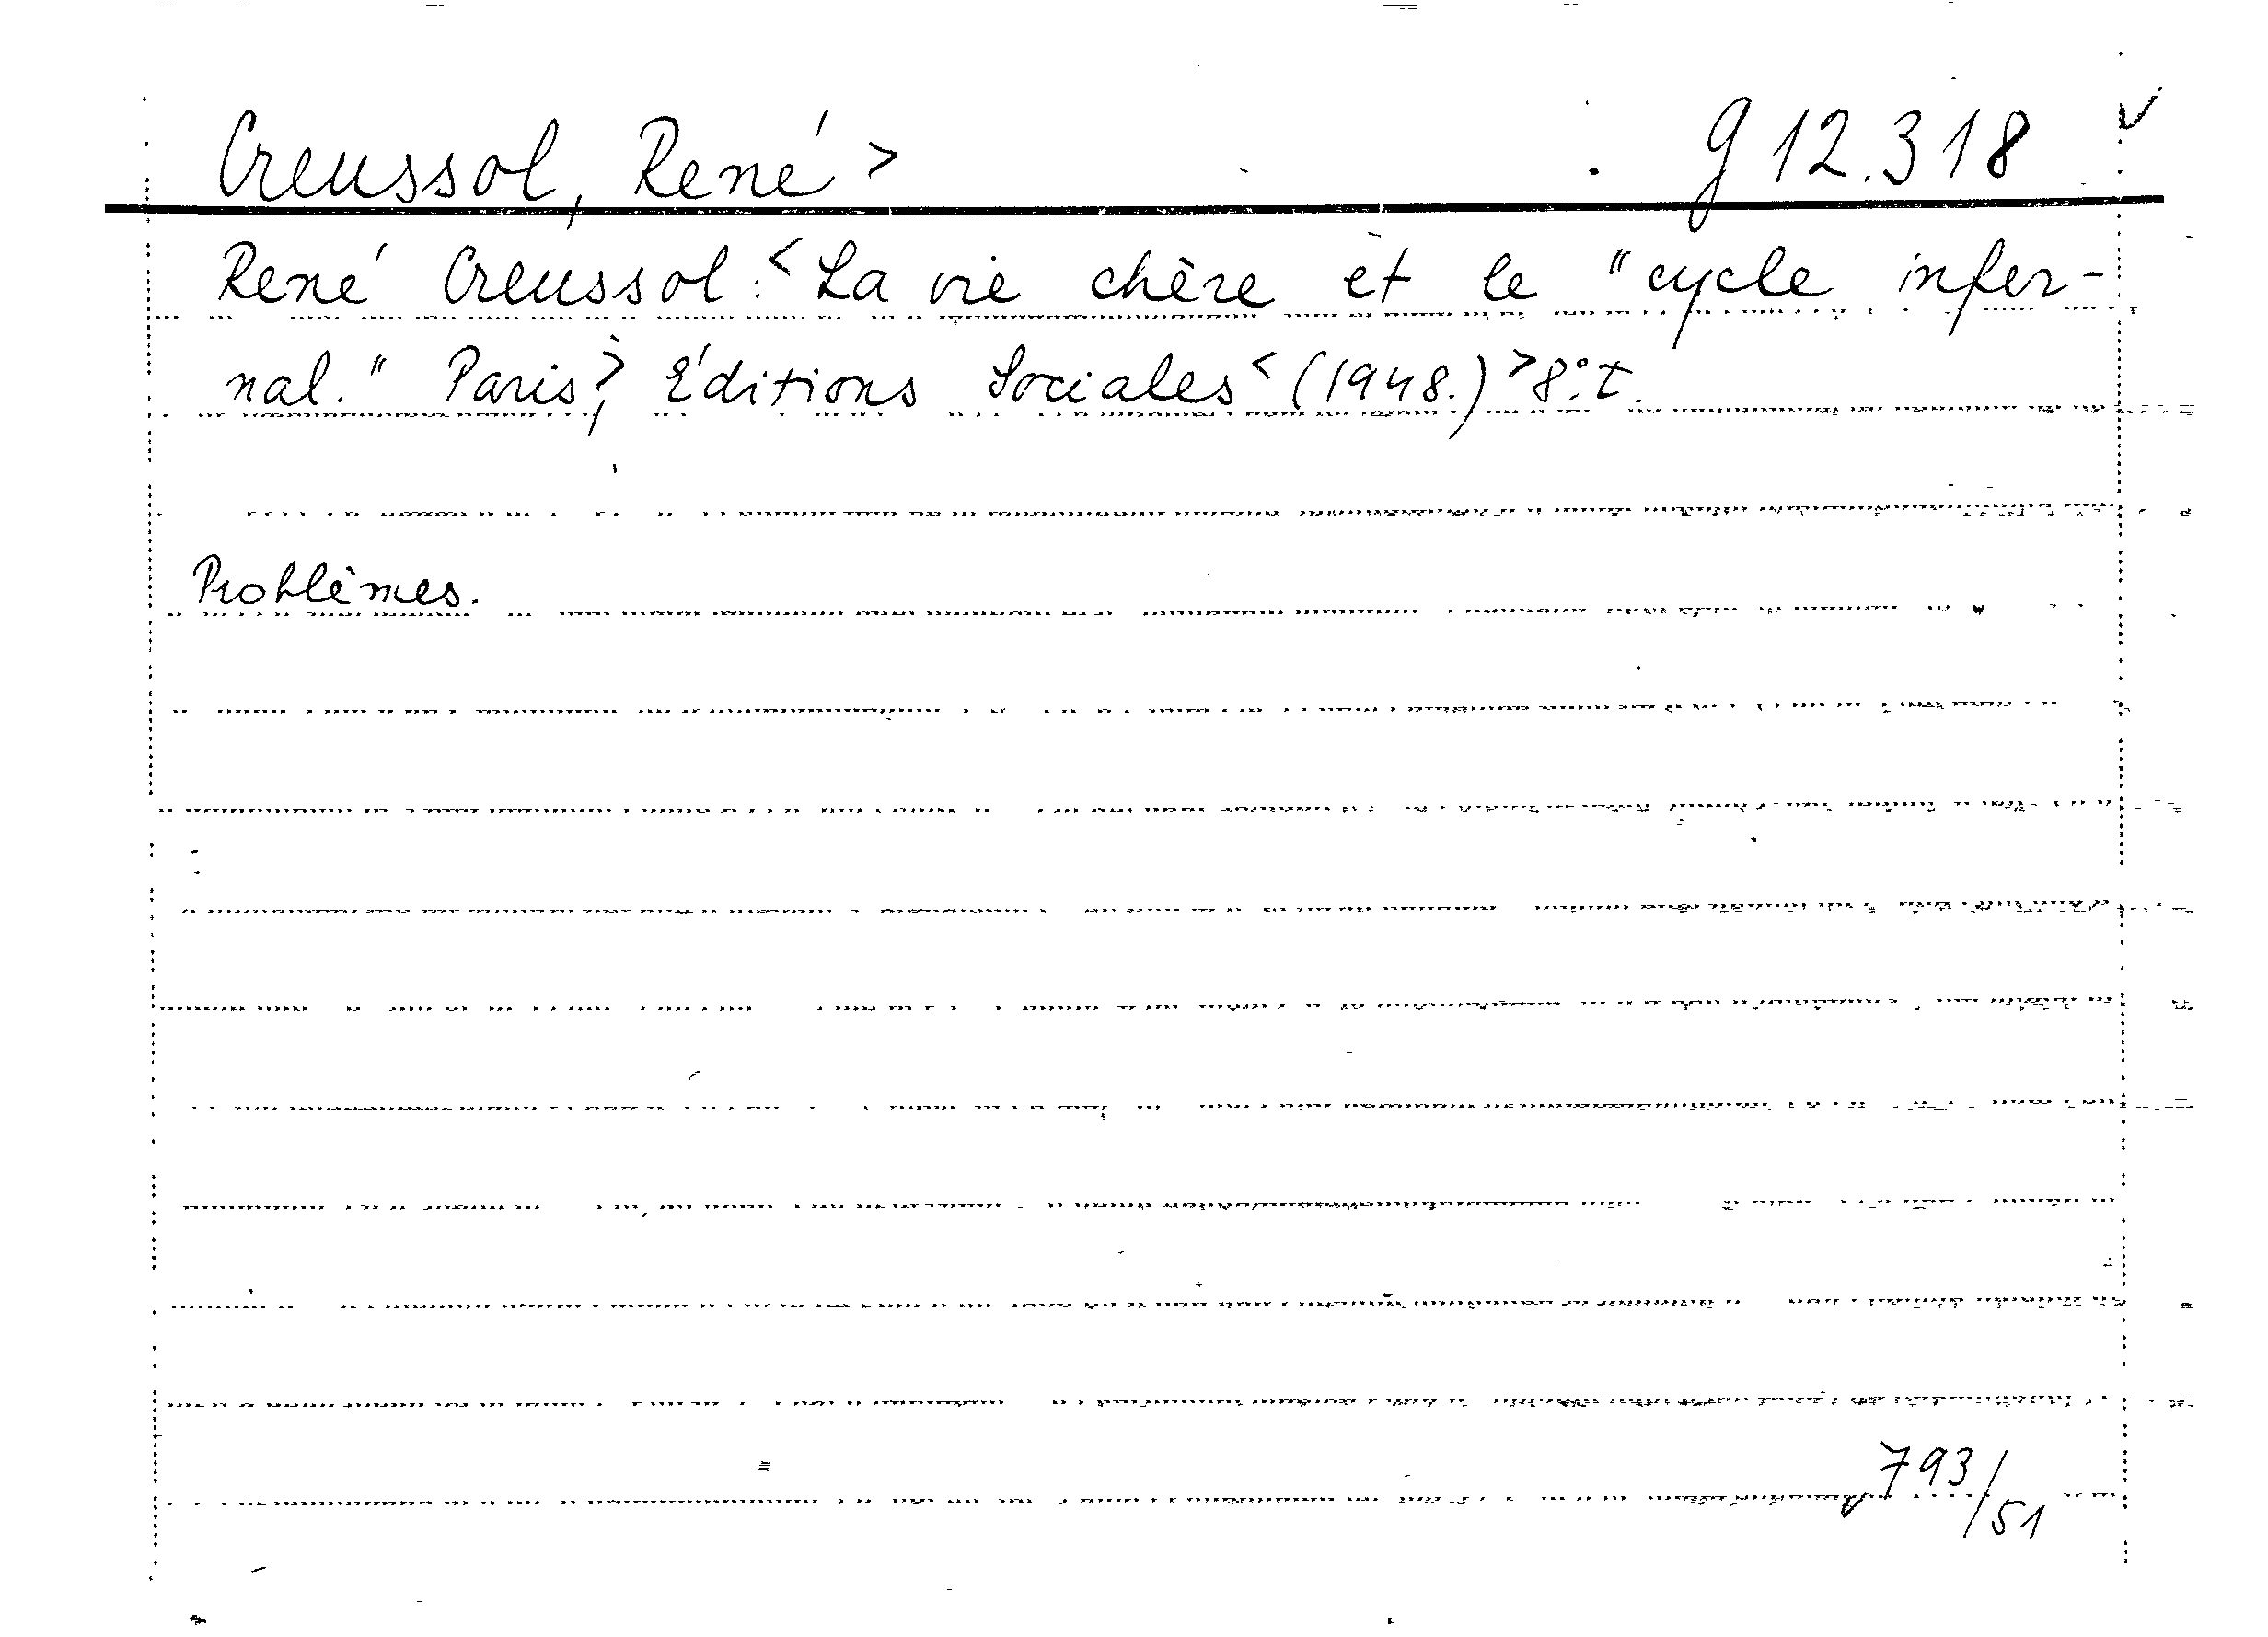 Creussol, René > g 12.318 ✓
René Creussol: < La vie chère et le "cycle infer-
nal." Paris, > Éditions Sociales < (1948.) > 8° t.
Problèmes.
793/51